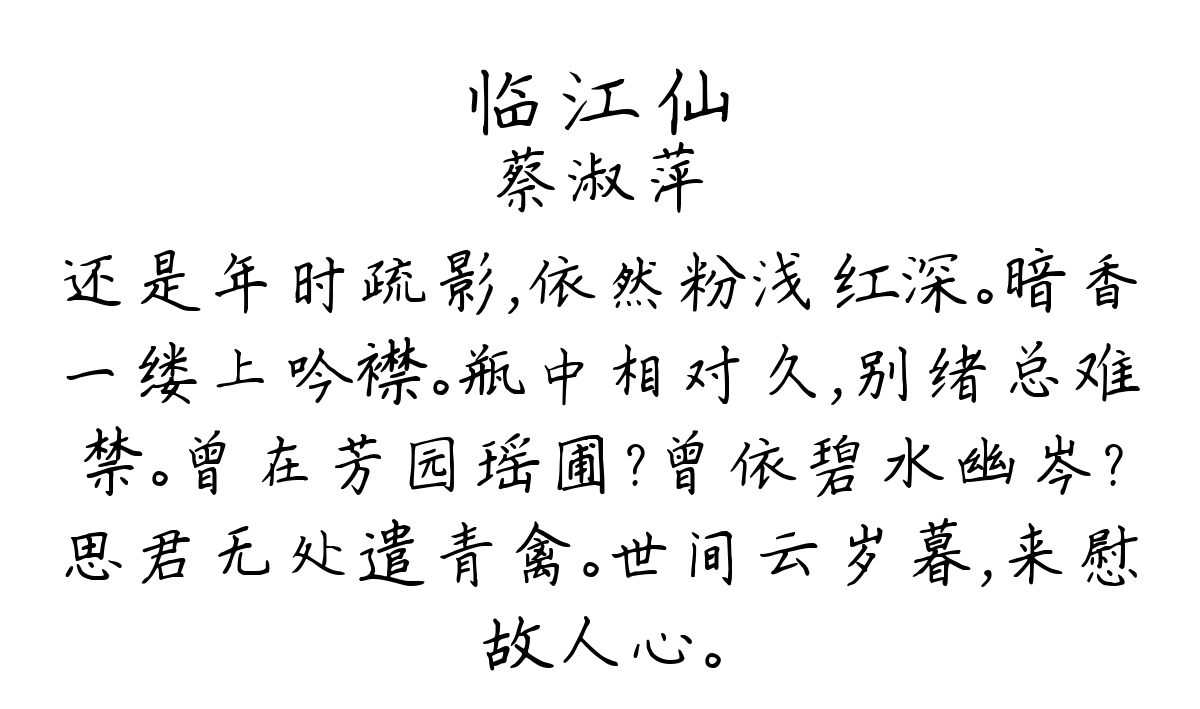 临江仙
蔡淑萍
还是年时疏影,依然粉浅红深。暗香
一缕上吟襟。瓶中相对久,别绪总难
禁。曾在芳园瑶圃?曾依碧水幽岑?
思君无处遣青禽。世间云岁暮,来慰
故人心。